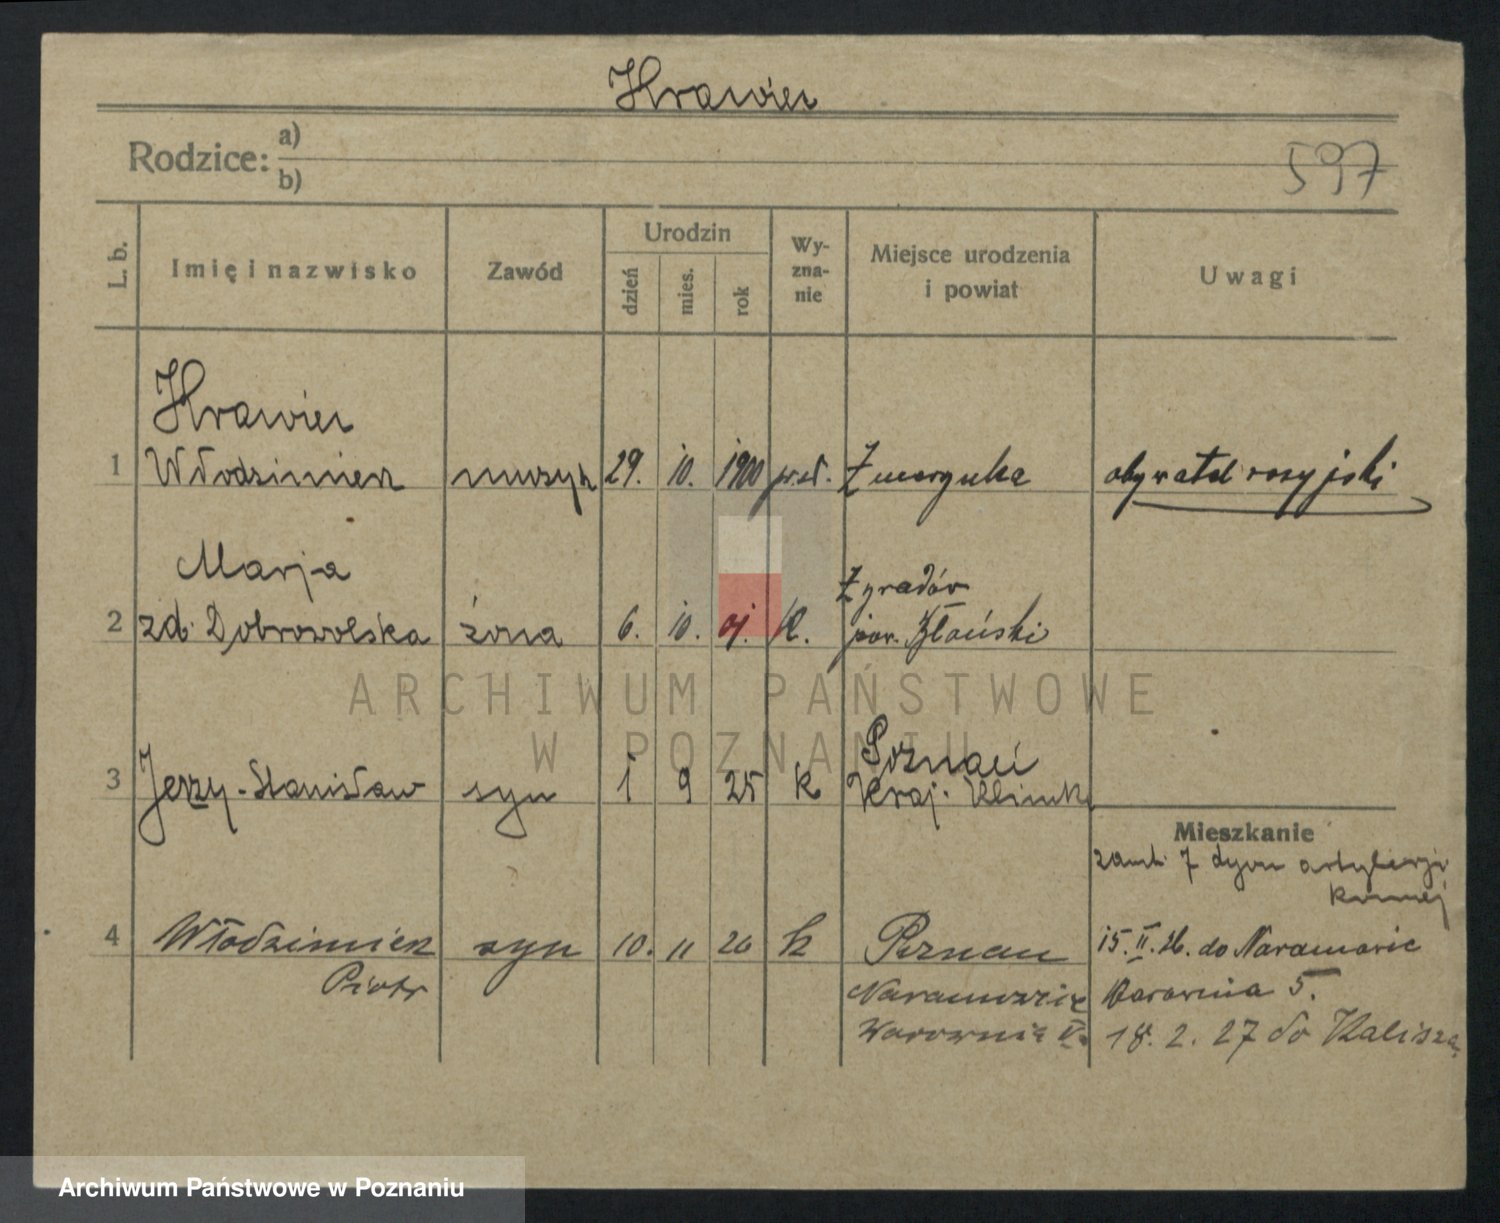 Krawiec
Rodzice: a)
b)
597
L. b.
Imię i nazwisko
Zawód
Urodzin
dzień
mies.
rok
Wy-
zna-
nie
Miejsce urodzenia
i powiat
Uwagi
Krawiec
1 Włodzimierz muzyk 29. 10. 1900 obywatel rosyjski
Marja
2 zd. Dobrowolska żona 6. 10. K.
pow.
ARCHIWUM PAŃSTWOWE
W POZNANIU
Poznań
3 Jerzy-Stanisław syn 1 9 25 k Kraj.
Mieszkanie
zam. 7 dyon artylerji
konnej
4 Włodzimierz syn 10. 11 26 k Poznań 15. II. 26. do Naramowic
Piotr Naramowice 5.
18. 2. 27 do Kalisza
Archiwum Państwowe w Poznaniu